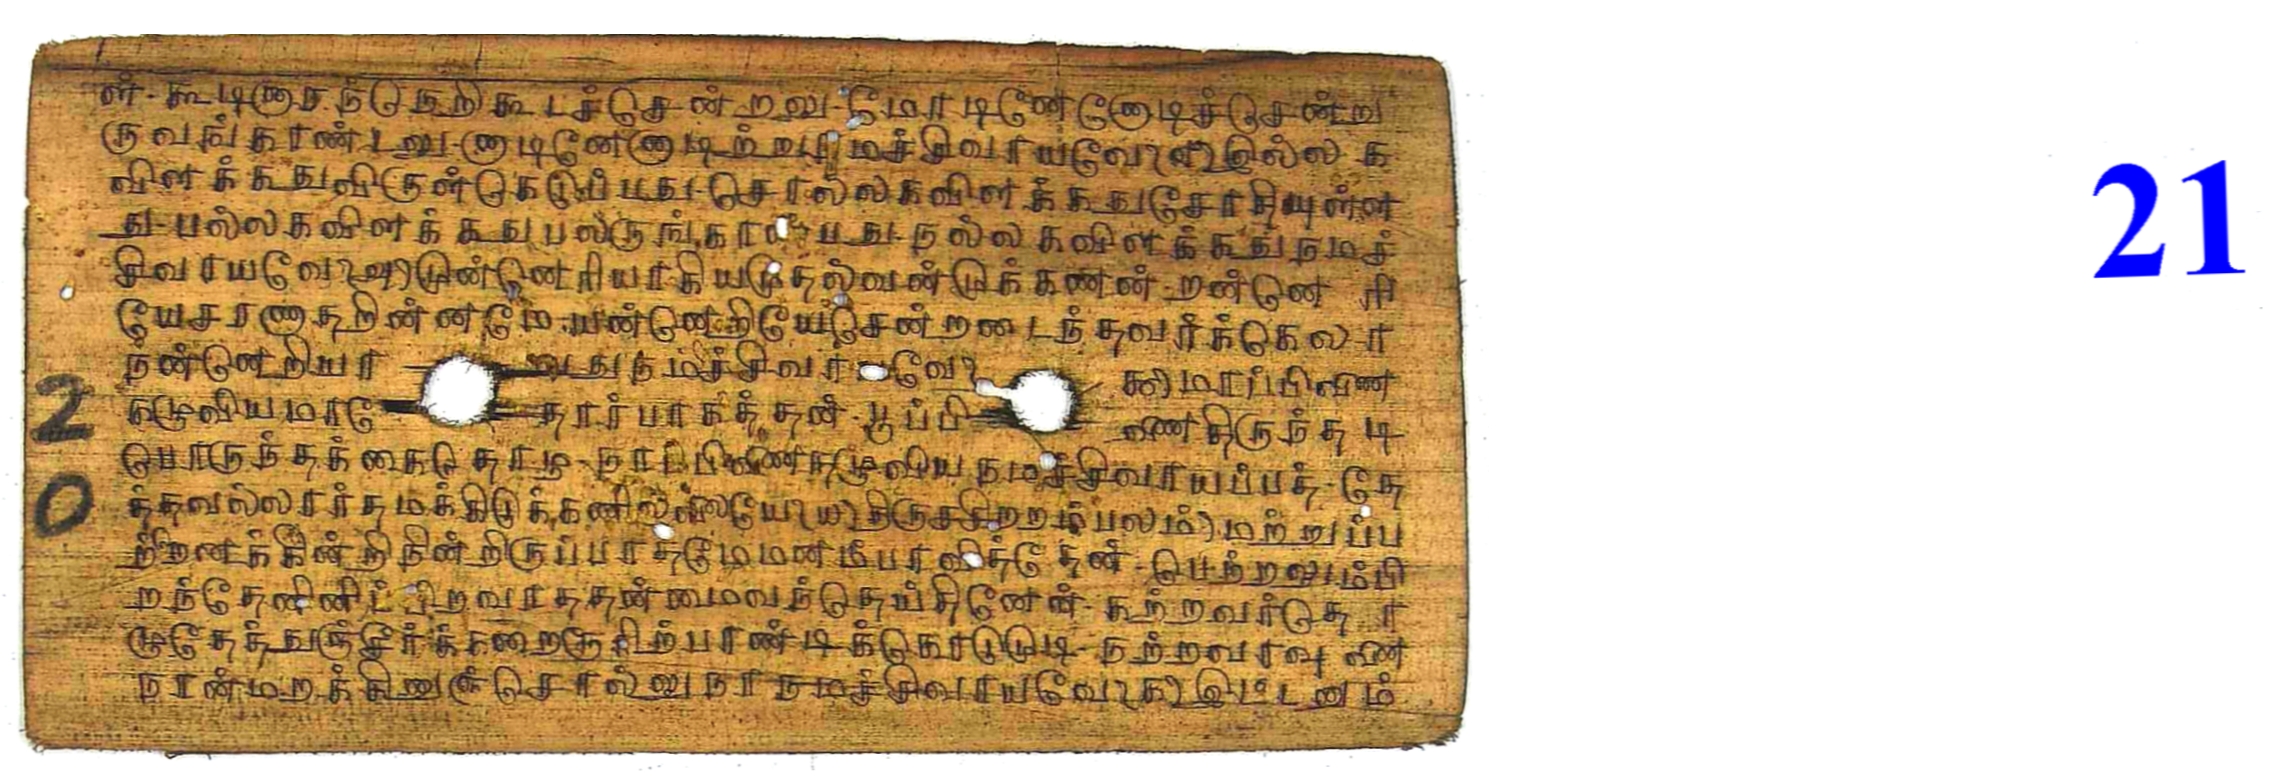 ன்-கூடினாரந்தெநறி கூடச்செ ன்றலு-மோடினேனோடிச்சென்று
ருவங்காண்டலு-னாடினேனாடிற்றுநமச்சிவாயவே ௭ இல்லக
விளக்கதுவிருள்கெடுப்பது-சொல்லகவிளக்கதுசோதியுள்ள
து-பல்லகவிளக்கதுபலருங்காண்பது-நல்லகவிளக்கதுநமச்
சிவாயவே ௮ முன்னெறியாகியமுதல்வன்முக்கணன்-றன்னெறி
யேசரணாதறிண்ணமே-யன்னெறியேசென்றடைந்தவர்க்கெலா
நன்னெறியா வதுநமச்சிவாயவே
௯ மாப்பிணை
தழுவியமாதோ ர்பாகத்தன்-பூப்பிணைதிருந்தடி
பொருந்தக்கைதொழ-நாப்பிணைதழுவியநமச்சிவாயப்பத்-தே
த்தவல்லார்தமக்கிடுக்கணில்லையே ௰ திருச்சிற்றம்பலம் மற்றுப்ப
ற்றெனக்கின்றிநின்றிருப்பாதமேமனம்பாவித்தேன்-பெற்றலும்பி
றந்தேனினிப்பிறவாததன்மைவந்தெய்தினேன்-கற்றவர்தொ
ழுதேத்துஞ்சீர்க்கறையூரிற்பாண்டிக்கொடுமுடி-நற்றவாவுனை
நான்மறக்கினுஞ்சொல்லுநாநமச்சிவாயவே ௧ இட்டனும்
2
0
21